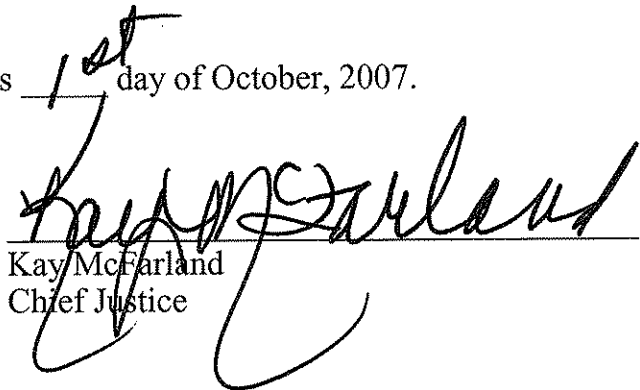 s 1st day of October, 2007.
Kay McFarland
Kay McFarland
Chief Justice